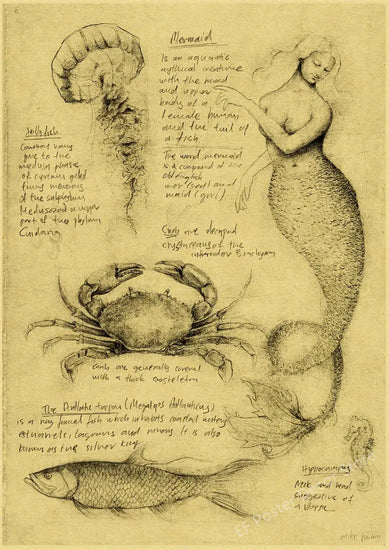 Mermaid
Is an aquatic
mythical creature
with the head
and upper
body of a
female human
and the tail of
a fish
The word mermaid
is a compound of the
old english
mer (sea) and
maid (girl)
Jellyfish
gove to the
medusa phase
of certain
living members
of the subphylum
Medusozoa a major
part of the phylum
Cnidaria
Crabs are decapod
crustaceans of the
Brachyura
crabs are generally covered
with a thick exoskeleton
The Atlantic tarpon (Megalops Atlanticus)
is a ray finned fish which inhabits coastal waters
estuaries, lagoons and rivers. It is also
known as the silver king
Hippocampus
Neck and head
suggestive of
a horse
EF Poster